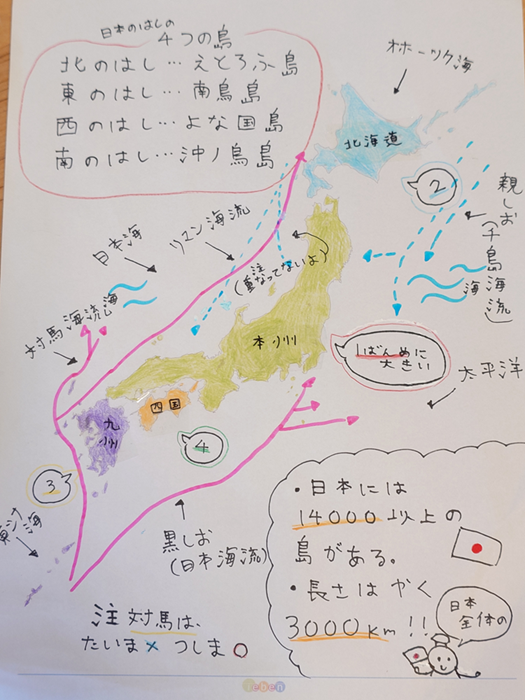 日本のはしの
4つの島
北のはし…えとろふ島
東のはし…南鳥島
西のはし…よな国島
南のはし…沖ノ鳥島
オホーツク海
北海道
2
親しお
(千島海流)
海
日本海
リマン海流
(注重なってないよ)
対馬海流
海
本州
1ばんめに
大きい
太平洋
四国
九州
4
3
東シナ海
黒しお
(日本海流)
・日本には
14000以上の
島がある。
・長さはやく
3000km!!
日本
全体の
注 対馬は、
たいま× つしま○